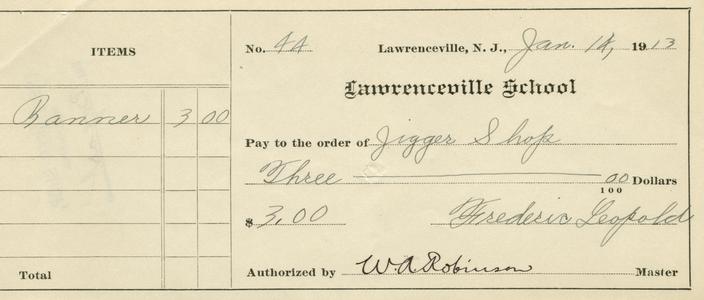 ITEMS
Banner 3 00
Total
No. 44 Lawrenceville, N. J., Jan. 14, 1913
Lawrenceville School
Pay to the order of Jigger Shop
Three 00/100 Dollars
$ 3.00 Frederic Leopold
Authorized by W. A. Robinson Master